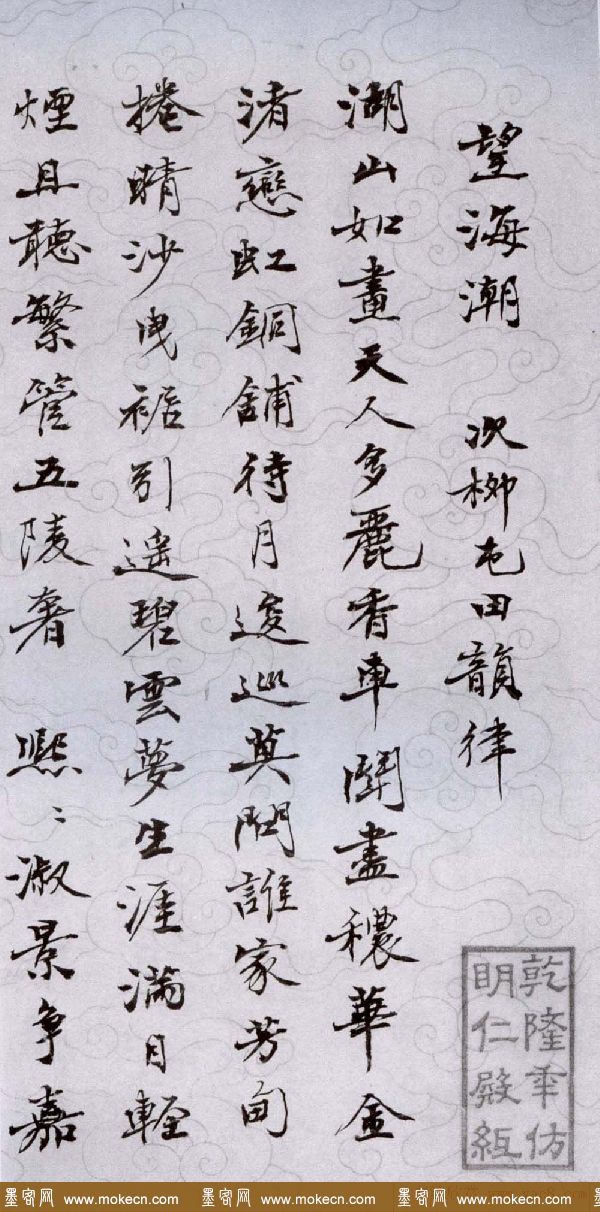 望海潮 次柳屯田韻律
湖山如畫天人多麗香車鬪盡穠華金
渚戀虹銅舖待月逡巡莫問誰家芳甸
捲晴沙曳裾引遥碧雲夢生涯滿目輕
煙且聽繁管五陵奢 熙〻淑景争嘉
乾隆年仿
明仁殿紙
墨客网 www.mokecn.com 墨客网 www.mokecn.com 墨客网 www.mokecn.com